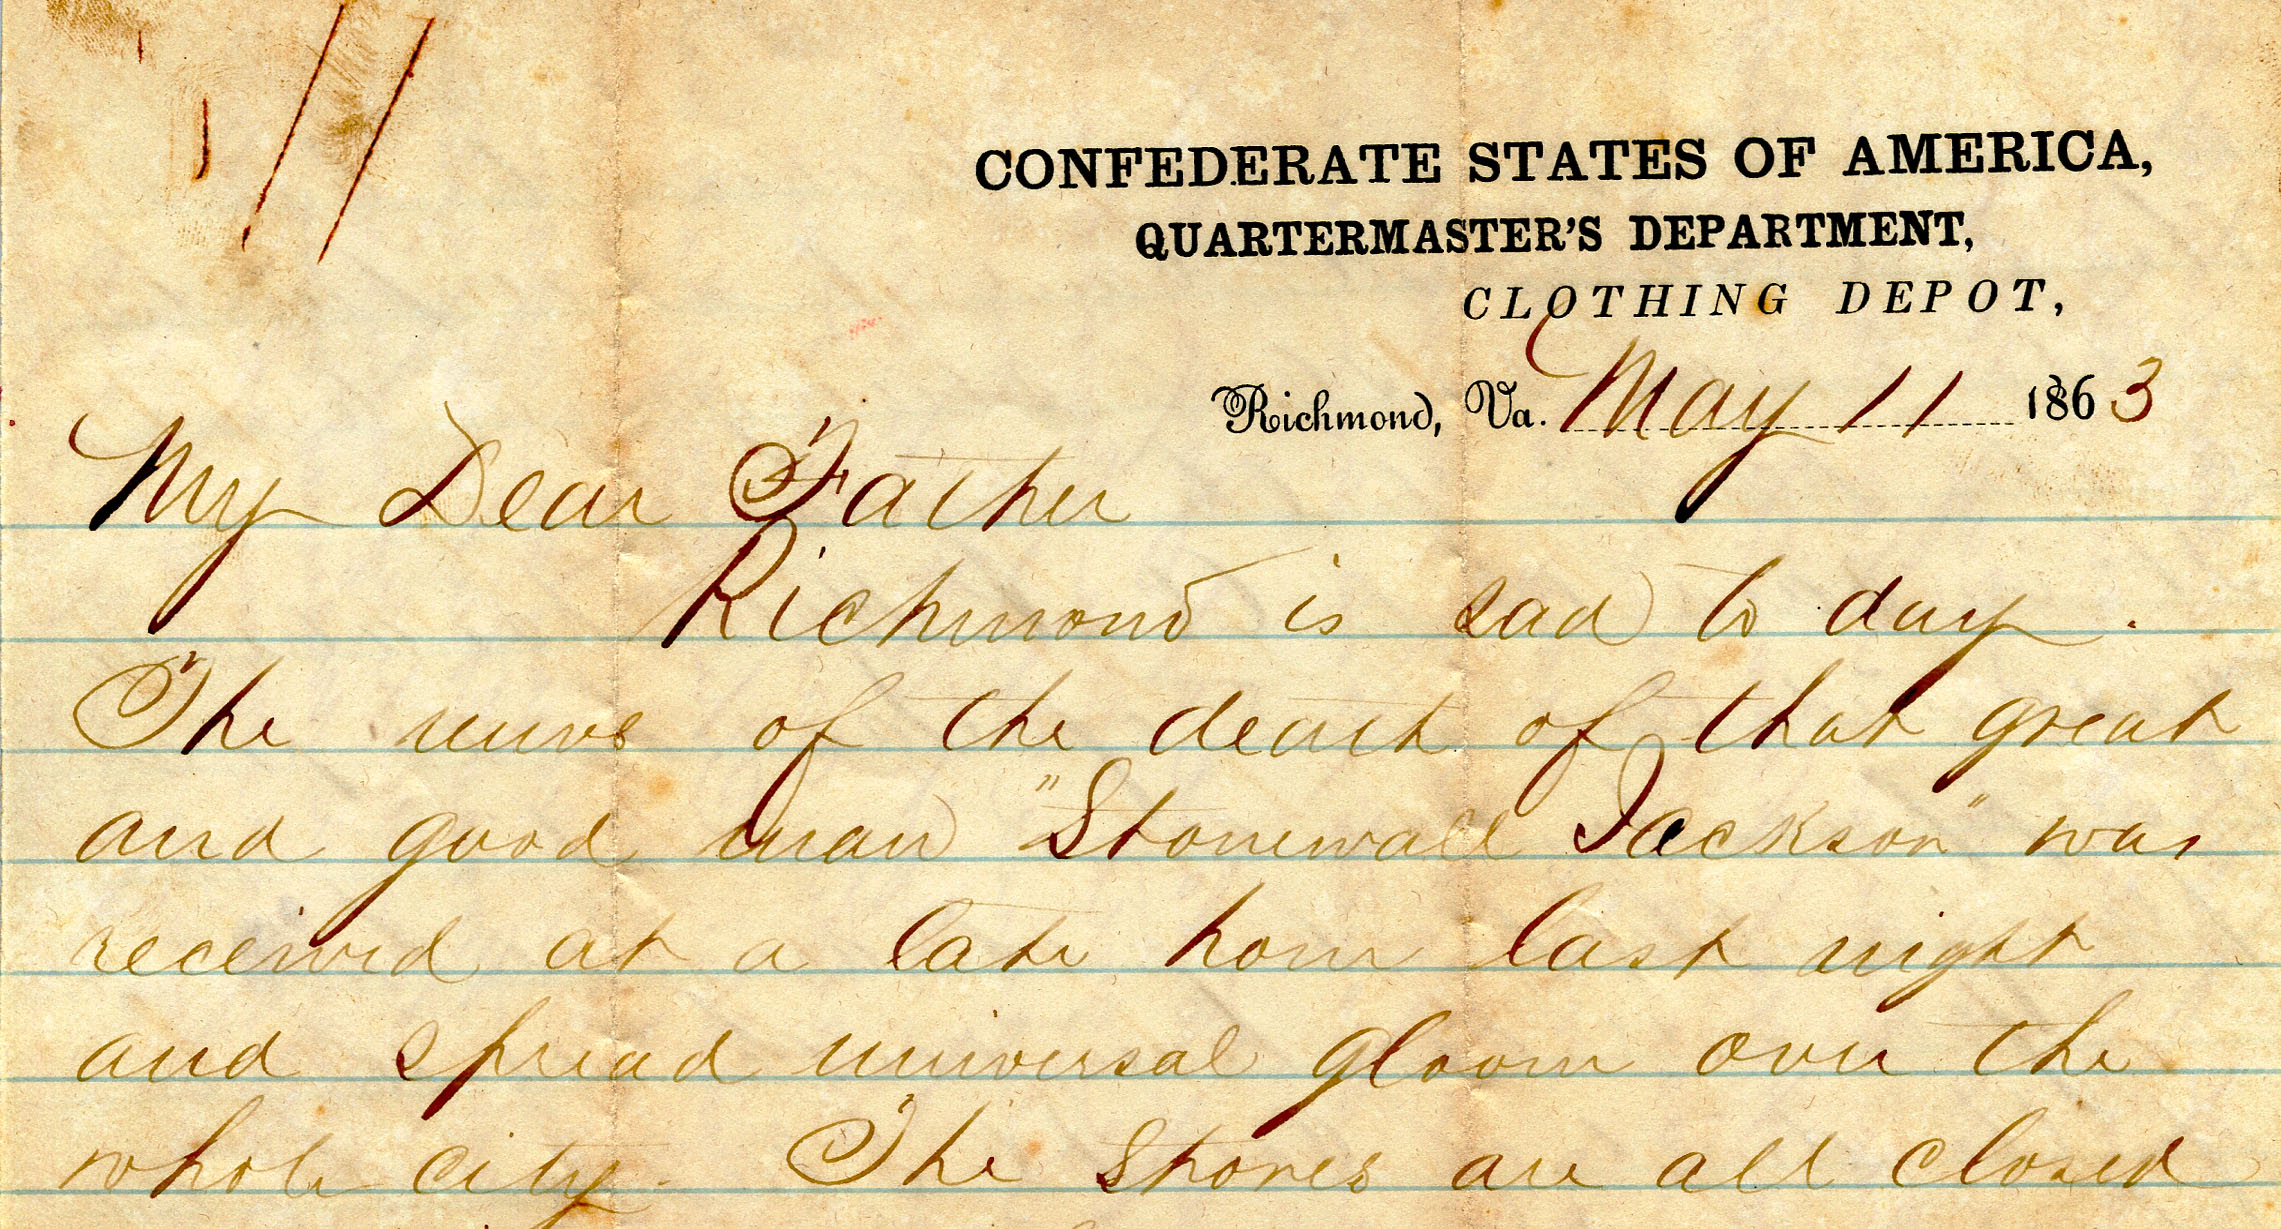 CONFEDERATE STATES OF AMERICA,
QUARTERMASTER'S DEPARTMENT,
CLOTHING DEPOT,
Richmond, Va. May 11 1863
My Dear Father
Richmond is sad to day.
The news of the death of that great
and good man "Stonewall Jackson" was
received at a late hour last night
and spread universal gloom over the
whole city. The stores are all closed